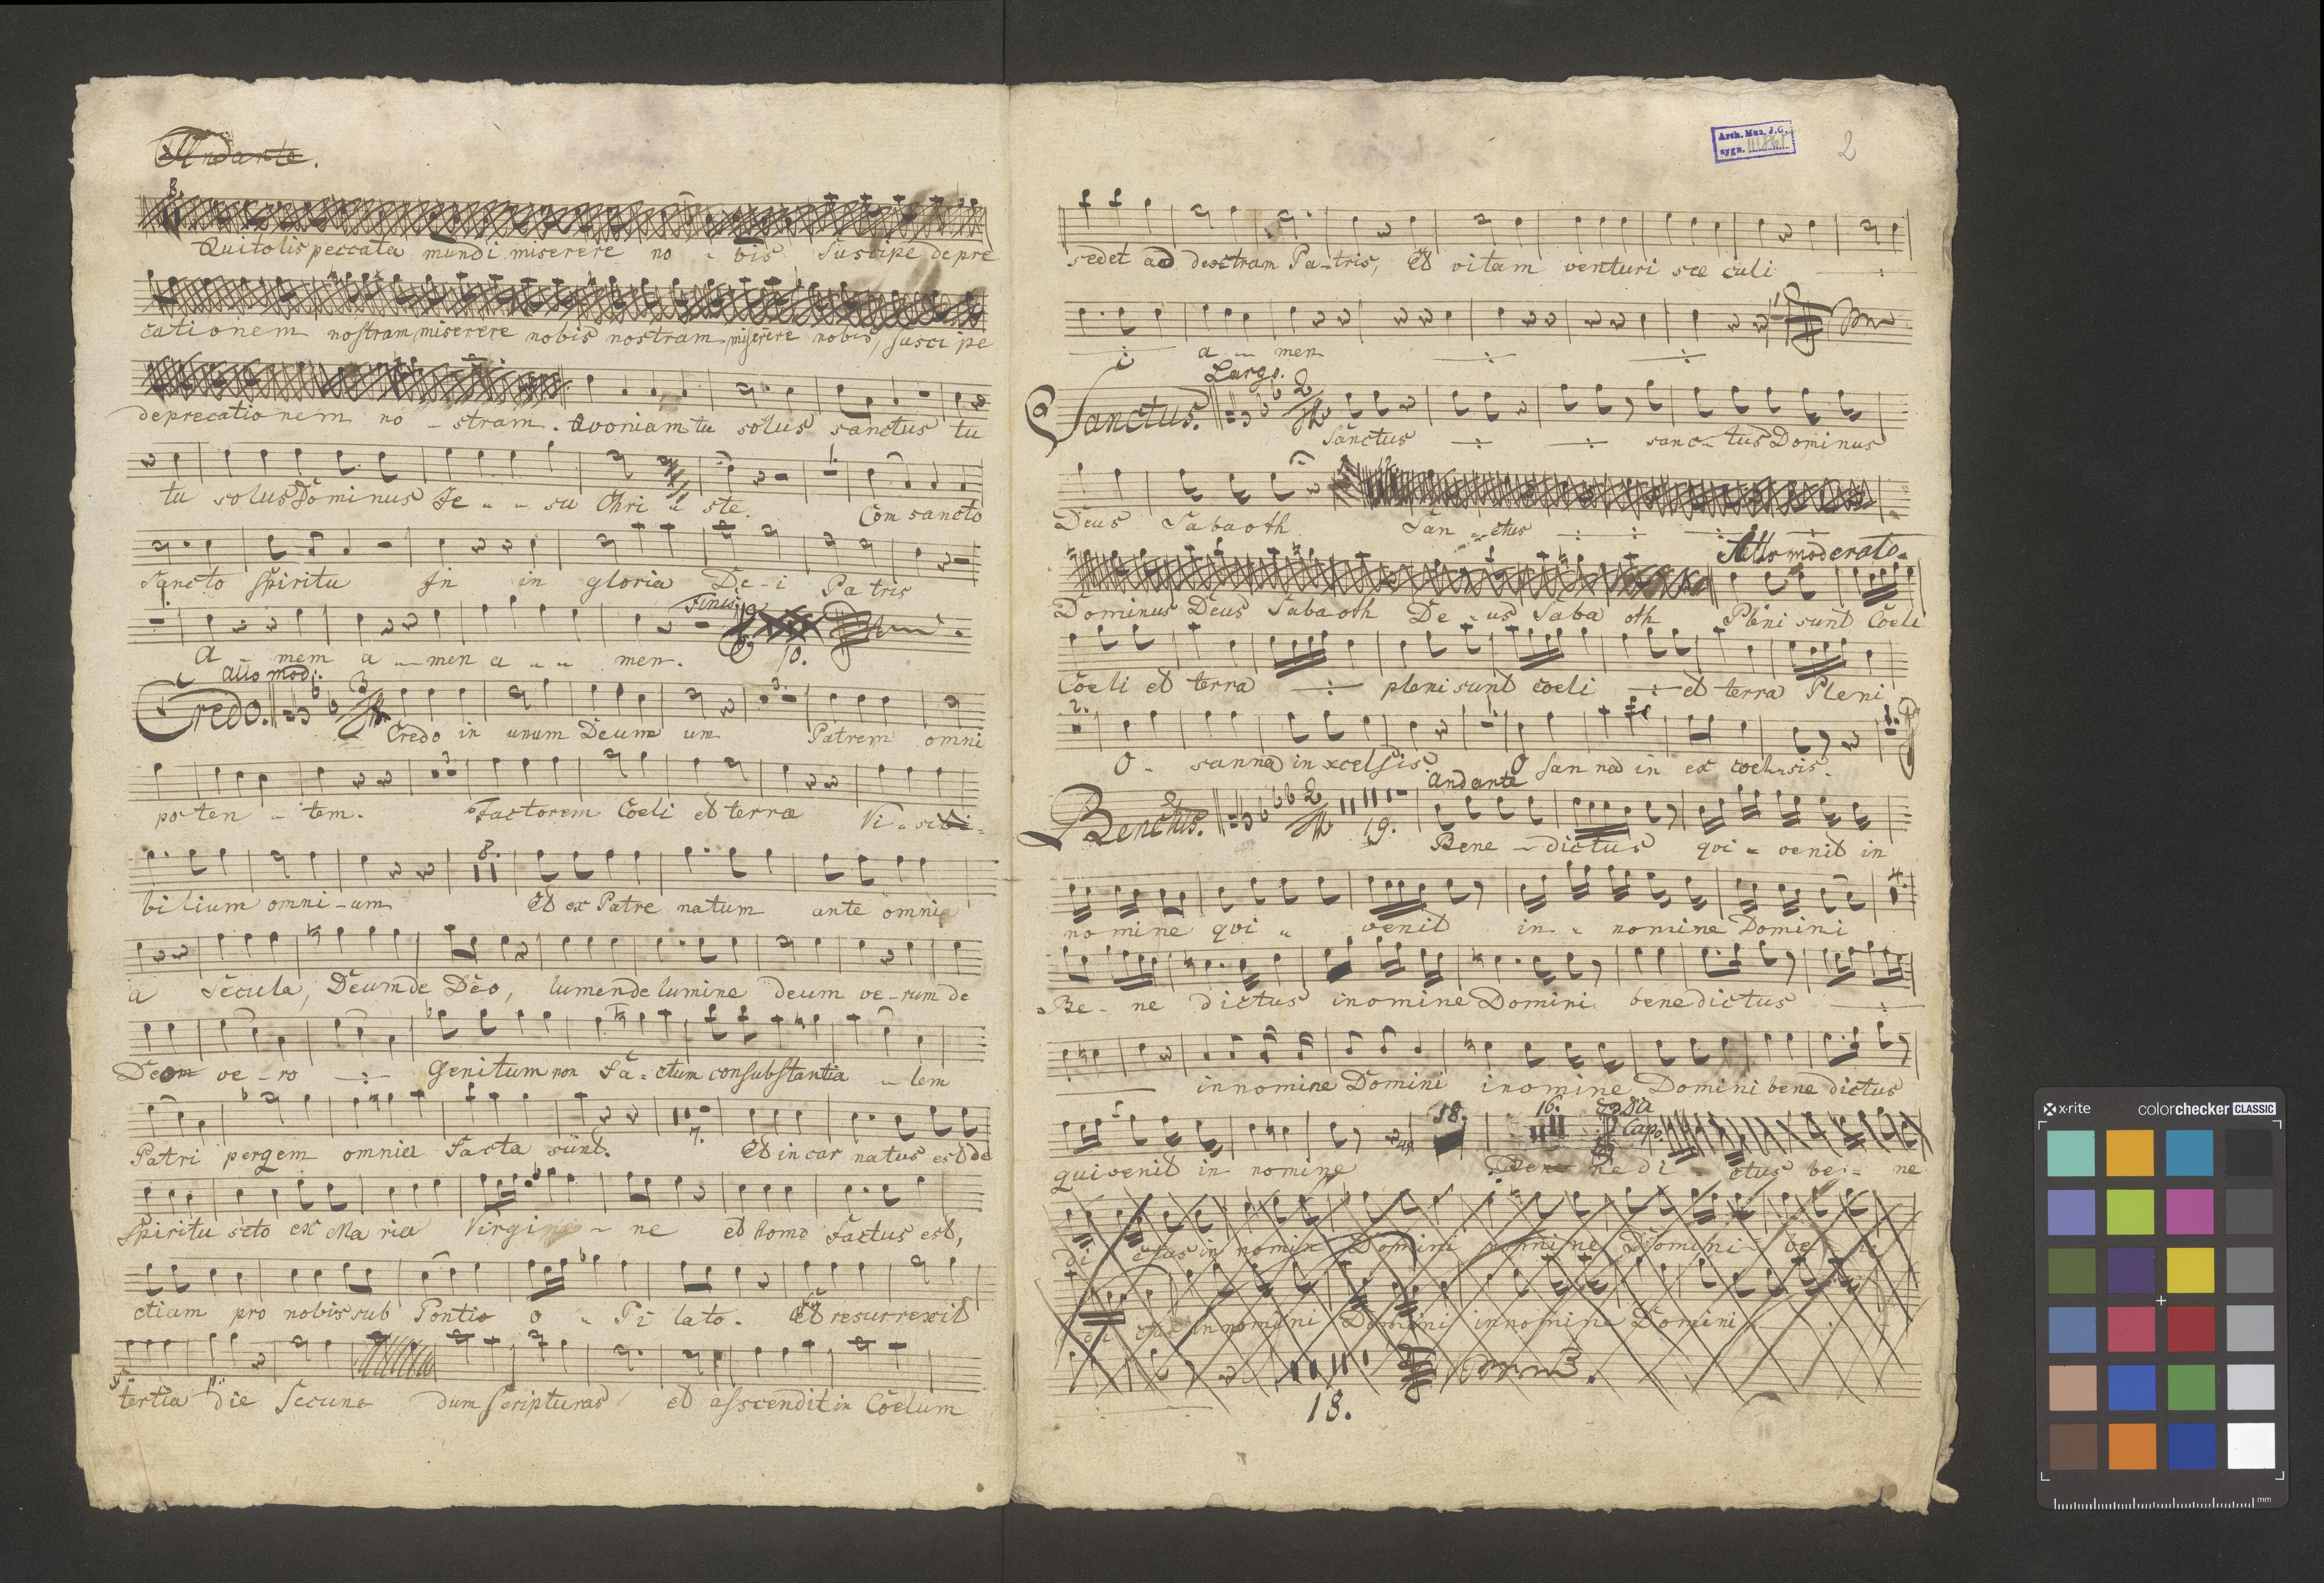 Andante.
8.
Qui tolis peccata mundi miserere no - bis Suscipe depre
cationem nostram, miserere nobis nostram miserere nobis, susci pe
deprecatio nem no - stram. Qvoniam tu solus sanctus tu
1.
tu solus Dominus Je - - su Chri - ste. Com sancto
Sancto Spiritu In in gloria De - i Pa tris
Finis
A - mem a - men a - - men. 10.
allo mod:
Credo. 3 Credo in unum Deum um Patrem omni
3.
po ten - tem. Factorem Coeli et terræ Vi - sibi -
8.
bilium omni - um Et ex Patre natum ante omnia
a secula, Deum de Deo, lumen de lumine deum ve - rum de
Deom ve - ro -:- Genitum non Fa - ctum consubstantia - lem
7.
Patri per qem omnia Facta sunt. Et in car natus est de
Spiritu scto ex Ma ria Virgi - ne et homo Factus est,
etiam pro nobis sub Pontio o - Pi lato. Et resurrexit
tertia die Secun dum scripturas et asscendit in Coelum
Arch. Muz. J.G.
sygn. III
2
sedet ad dextram Pa - tris, Et vitam venturi sæ culi -:-
-:- a - men -:- -:-
Largo.
Sanctus. 2 Sanctus -:- -:- sanc - tus Dominus
Deus Sabaoth San - ctus -:- -:- -:- -:-
Allo moderato.
Dominus Deus Sabaoth De - us Saba oth Pleni sunt Coeli
Coeli et terra -:- pleni sunt coeli -:- et terra Pleni
2. 1.
O - sanna in xcelsis O sanna in ex coelsis.
Andante
Benctus. 2 19. Bene - dictus qvi - venit in
nomine qvi - venit in - nomine Domini
Be - ne dictus inomine Domini benedictus -:-
in nomine Domini inomine Domini bene dictus
18. 16. Da Capo.
qui venit in nomine Bene ne di - ctus be - ne
di ctus in nomine Domini nomine Domini be
di ctus in nomini Domini in nomine Domini
18.
x-rite colorchecker CLASSIC
mm